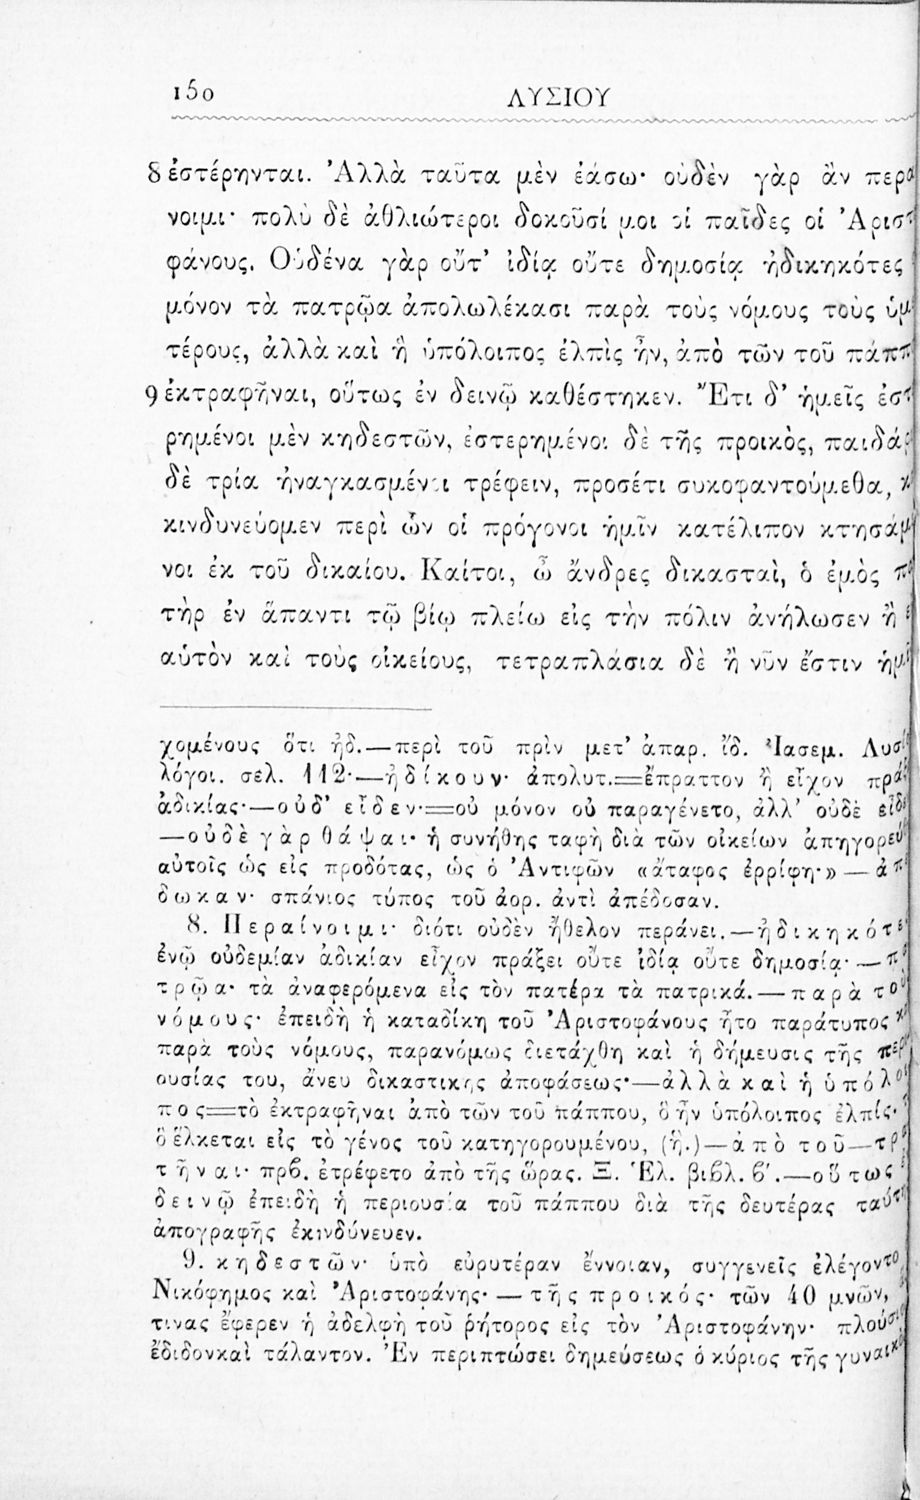 150 ΛΥΣΙΟΥ
8 ἐστέρηνται. Ἀλλὰ ταῦτα μὲν ἐάσω· οὐδὲν γὰρ ἂν περα
νοιμι· πολὺ δὲ ἀθλιώτεροι δοκοῦσί μοι οἱ παῖδες οἱ Ἀριστ
φάνους. Οὐδένα γὰρ οὔτ’ ἰδίᾳ οὔτε δημοσίᾳ ἠδικηκότες
μόνον τὰ πατρῷα ἀπολωλέκασι παρὰ τοὺς νόμους τοὺς ὑμ
τέρους, ἀλλὰ καὶ ἣ ὑπόλοιπος ἐλπὶς ἦν, ἀπὸ τῶν τοῦ πάππ
9 ἐκτραφῆναι, οὕτως ἐν δεινῷ καθέστηκεν. Ἔτι δ’ ἡμεῖς ἐστ
ρημένοι μὲν κηδεστῶν, ἐστερημένοι δὲ τῆς προικὸς, παιδάρ
δὲ τρία ἠναγκασμένοι τρέφειν, προσέτι συκοφαντούμεθα, κ
κινδυνεύομεν περὶ ὧν οἱ πρόγονοι ἡμῖν κατέλιπον κτησάμ
νοι ἐκ τοῦ δικαίου. Καίτοι, ὦ ἄνδρες δικασταὶ, ὁ ἐμὸς πα
τὴρ ἐν ἅπαντι τῷ βίῳ πλείω εἰς τὴν πόλιν ἀνήλωσεν ἢ ε
αὑτὸν καὶ τοὺς οἰκείους, τετραπλάσια δὲ ἢ νῦν ἔστιν ἡμῖ
χομένους ὅτι ἠδ.—περὶ τοῦ πρὶν μετ’ ἀπαρ. ἴδ. Ἰασεμ. Λυσί
λόγοι. σελ. 112·—ἠδίκουν· ἀπολυτ.=ἔπραττον ἢ εἶχον πρά
ἀδικίας·—οὐδ’ εἶδεν·=οὐ μόνον οὐ παραγένετο, ἀλλ’ οὐδὲ εἶδε
—οὐδὲ γὰρ θάψαι· ἡ συνήθης ταφὴ διὰ τῶν οἰκείων ἀπηγορεύ
αὐτοῖς ὡς εἰς προδότας, ὡς ὁ Ἀντιφῶν «ἄταφος ἐρρίφη·»—ἀπ
δωκαν· σπάνιος τύπος τοῦ ἀορ. ἀντὶ ἀπέδοσαν.
8. Περαίνοιμι· διότι οὐδὲν ἤθελον περάνει.—ἠδικηκότε
ἐνῷ οὐδεμίαν ἀδικίαν εἶχον πράξει οὔτε ἰδίᾳ οὔτε δημοσίᾳ·—πα
τρῷα· τὰ ἀναφερόμενα εἰς τὸν πατέρα τὰ πατρικά.—παρὰ τοὺ
νόμους· ἐπειδὴ ἡ καταδίκη τοῦ Ἀριστοφάνους ἦτο παράτυπος κα
παρὰ τοὺς νόμους, παρανόμως διετάχθη καὶ ἡ δήμευσις τῆς περι
ουσίας του, ἄνευ δικαστικῆς ἀποφάσεως·—ἀλλὰ καὶ ἡ ὑπόλοι
πος=τὸ ἐκτραφῆναι ἀπὸ τῶν τοῦ πάππου, ὃ ἦν ὑπόλοιπος ἐλπίς·
ὃ ἕλκεται εἰς τὸ γένος τοῦ κατηγορουμένου, (ἥ.)—ἀπὸ τοῦ—τρα
τῆναι· πρβ. ἐτρέφετο ἀπὸ τῆς ὥρας. Ξ. Ἑλ. βιβλ. β'.—οὕτως ἐ
δεινῷ ἐπειδὴ ἡ περιουσία τοῦ πάππου διὰ τῆς δευτέρας ταύτη
ἀπογραφῆς ἐκινδύνευεν.
9. κηδεστῶν· ὑπὸ εὐρυτέραν ἔννοιαν, συγγενεῖς ἐλέγοντο
Νικόφημος καὶ Ἀριστοφάνης·—τῆς προικός· τῶν 40 μνῶν,
τινας ἔφερεν ἡ ἀδελφὴ τοῦ ῥήτορος εἰς τὸν Ἀριστοφάνην· πλούσι
ἔδιδον καὶ τάλαντον. Ἐν περιπτώσει δημεύσεως ὁ κύριος τῆς γυναικὸ